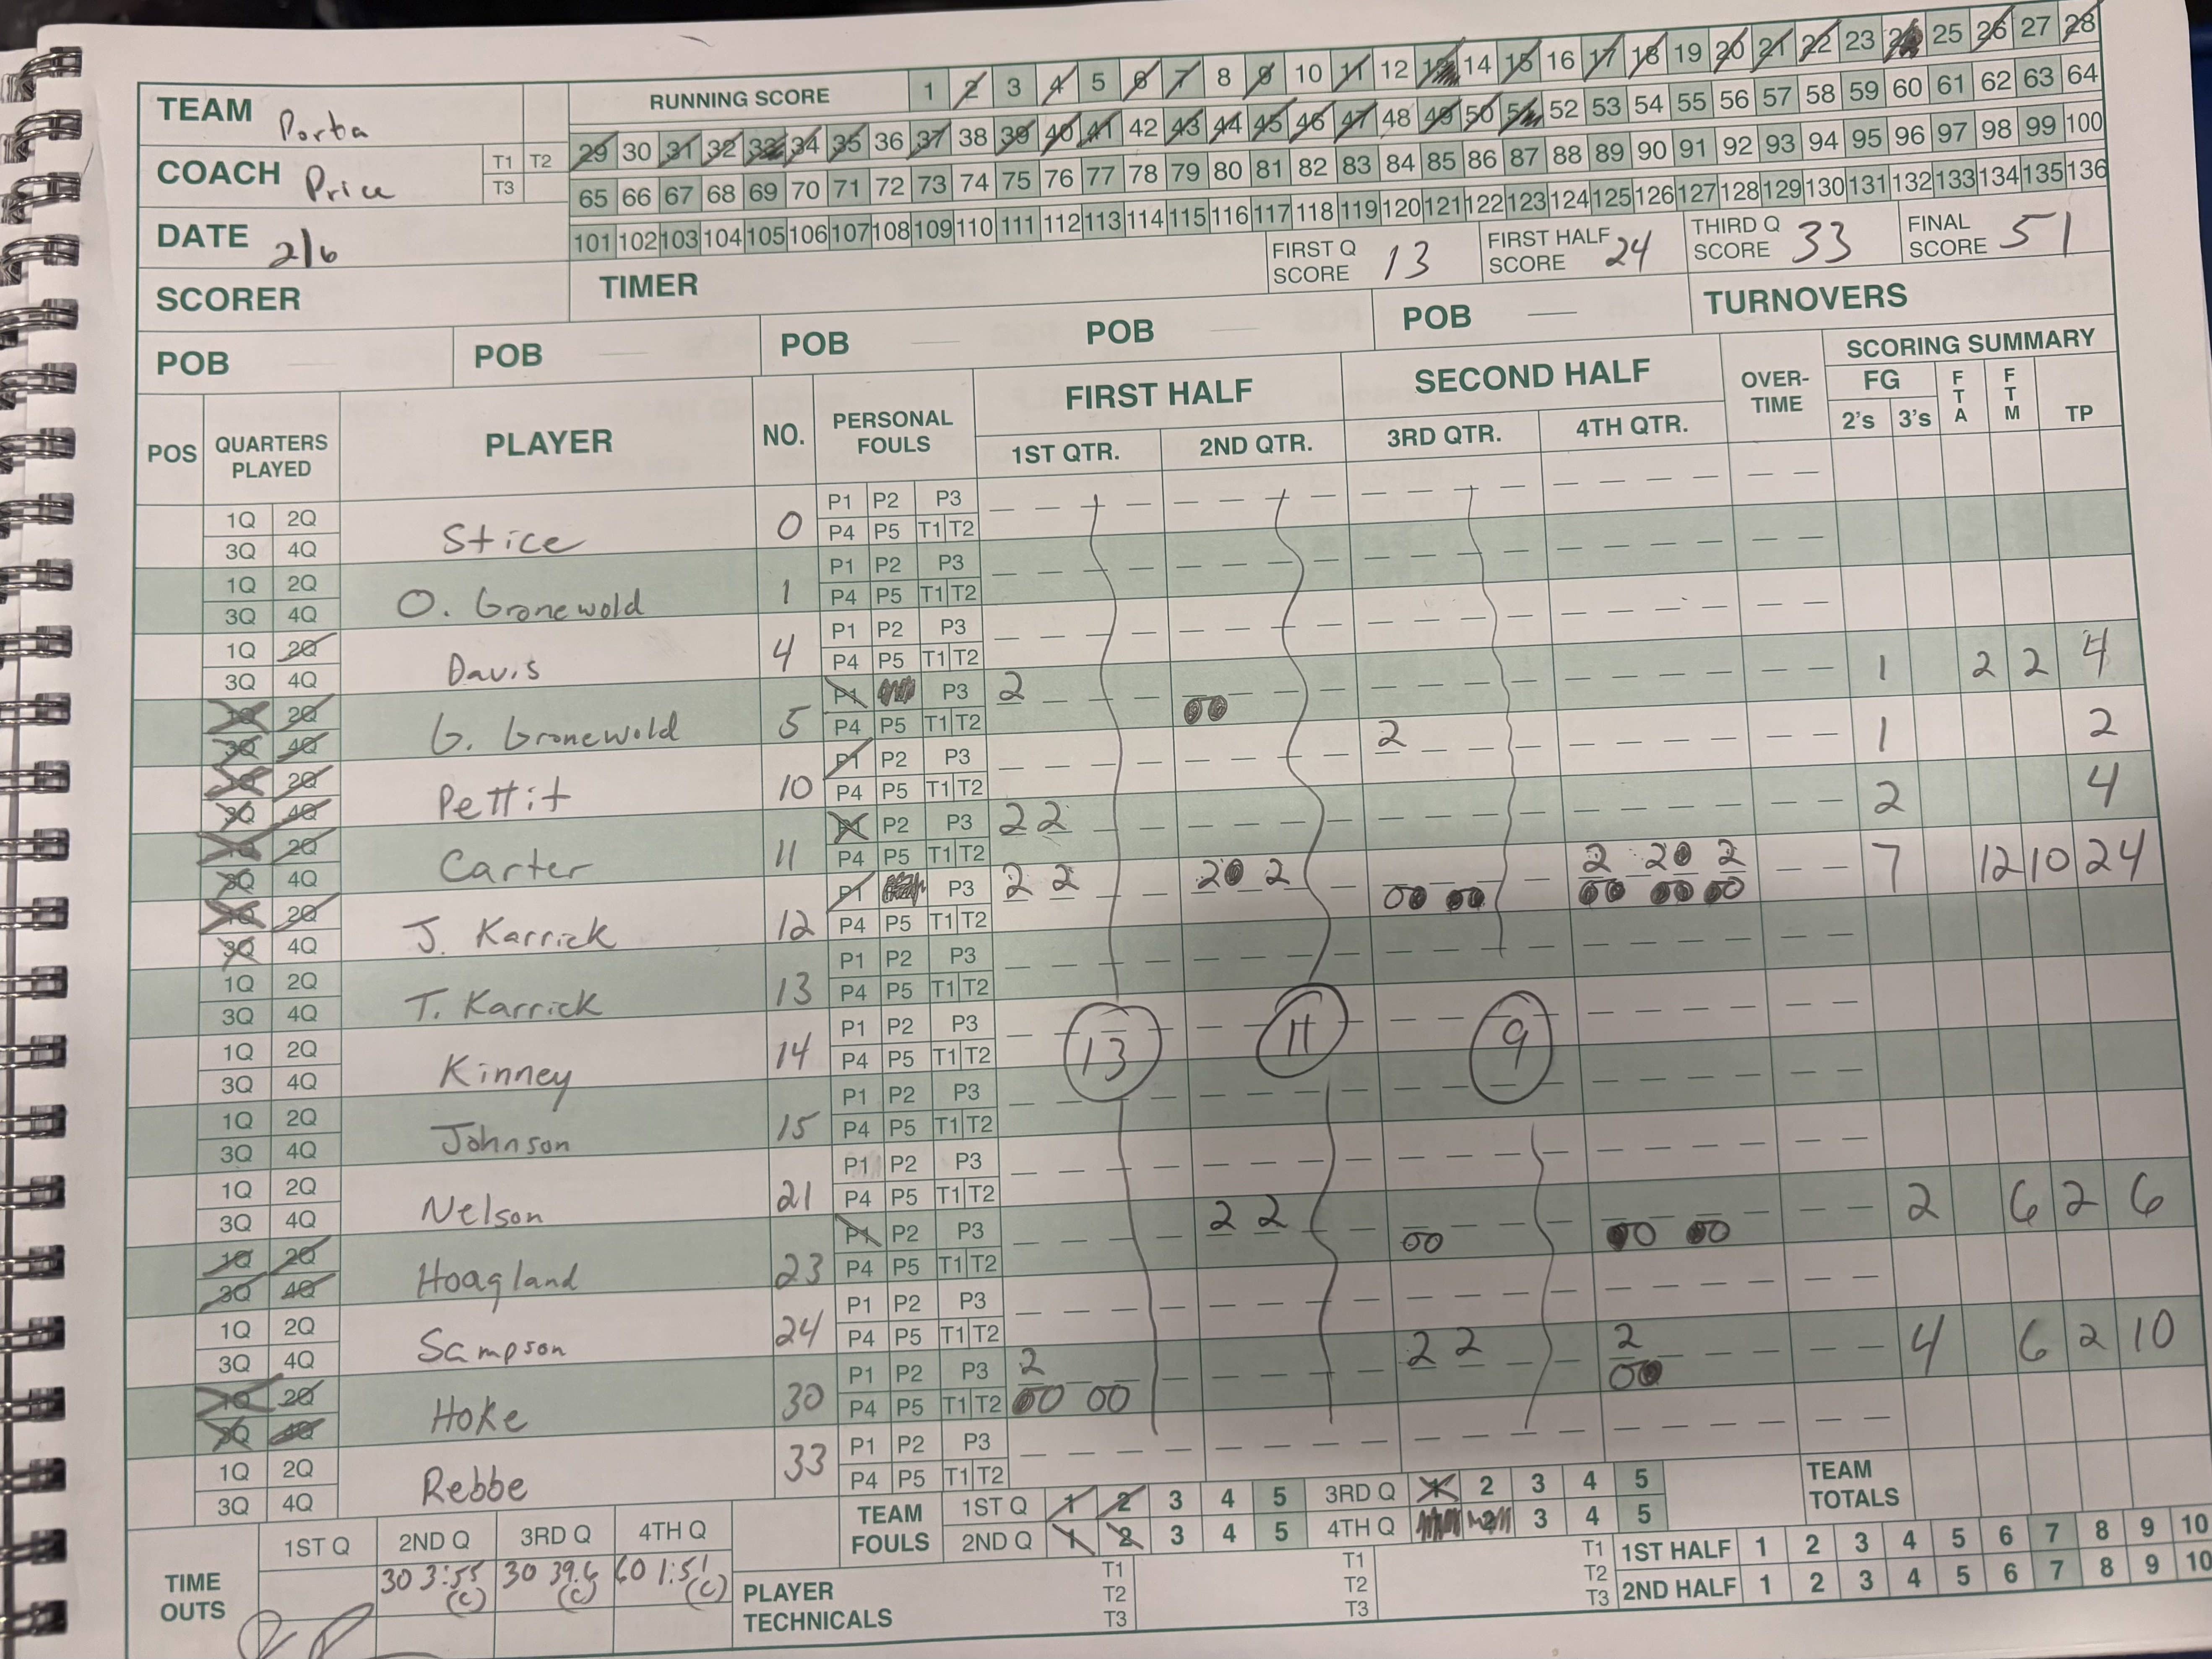 TEAM Porta
RUNNING SCORE 1 2 3 4 5 6 7 8 9 10 11 12 13 14 15 16 17 18 19 20 21 22 23 24 25 26 27 28
29 30 31 32 33 34 35 36 37 38 39 40 41 42 43 44 45 46 47 48 49 50 51 52 53 54 55 56 57 58 59 60 61 62 63 64
COACH Price T1 T2 T3
65 66 67 68 69 70 71 72 73 74 75 76 77 78 79 80 81 82 83 84 85 86 87 88 89 90 91 92 93 94 95 96 97 98 99 100
101 102 103 104 105 106 107 108 109 110 111 112 113 114 115 116 117 118 119 120 121 122 123 124 125 126 127 128 129 130 131 132 133 134 135 136
DATE 2/6
FIRST Q SCORE 13 FIRST HALF SCORE 24 THIRD Q SCORE 33 FINAL SCORE 51
SCORER TIMER
POB POB POB POB POB TURNOVERS
POS QUARTERS PLAYED PLAYER NO. PERSONAL FOULS FIRST HALF SECOND HALF OVER-TIME SCORING SUMMARY
1ST QTR. 2ND QTR. 3RD QTR. 4TH QTR. FG 2's 3's FTA FTM TP
1Q 2Q 3Q 4Q Stice 0 P1 P2 P3 P4 P5 T1 T2
1Q 2Q 3Q 4Q O. Gronewold 1 P1 P2 P3 P4 P5 T1 T2
1Q 2Q 3Q 4Q Davis 4 P1 P2 P3 P4 P5 T1 T2
1Q 2Q 3Q 4Q G. Gronewold 5 P1 P3 P4 P5 T1 T2 2 00 1 2 2 4
1Q 2Q 3Q 4Q Pettit 10 P1 P2 P3 P4 P5 T1 T2 2 1 2
1Q 2Q 3Q 4Q Carter 11 P1 P2 P3 P4 P5 T1 T2 2 2 2 4
1Q 2Q 3Q 4Q J. Karrick 12 P1 P3 P4 P5 T1 T2 2 2 20 2 00 00 2 20 2 00 00 00 7 12 10 24
1Q 2Q 3Q 4Q T. Karrick 13 P1 P2 P3 P4 P5 T1 T2
1Q 2Q 3Q 4Q Kinney 14 P1 P2 P3 P4 P5 T1 T2 13 11 9
1Q 2Q 3Q 4Q Johnson 15 P1 P2 P3 P4 P5 T1 T2
1Q 2Q 3Q 4Q Nelson 21 P1 P2 P3 P4 P5 T1 T2
1Q 2Q 3Q 4Q Hoagland 23 P1 P2 P3 P4 P5 T1 T2 2 2 00 00 00 2 6 2 6
1Q 2Q 3Q 4Q Sampson 24 P1 P2 P3 P4 P5 T1 T2
1Q 2Q 3Q 4Q Hoke 30 P1 P2 P3 P4 P5 T1 T2 2 00 00 2 2 2 00 4 6 2 10
1Q 2Q 3Q 4Q Rebbe 33 P1 P2 P3 P4 P5 T1 T2
TEAM FOULS 1ST Q 1 2 3 4 5 3RD Q 1 2 3 4 5 TEAM TOTALS
2ND Q 1 2 3 4 5 4TH Q 2 3 4 5
TIME OUTS 1ST Q 2ND Q 3RD Q 4TH Q
30 3:55 (C) 30 39.6 (C) 60 1:51 (C)
PLAYER TECHNICALS T1 T2 T3 T1 T2 T3 T1 T2 T3
1ST HALF 1 2 3 4 5 6 7 8 9 10
2ND HALF 1 2 3 4 5 6 7 8 9 10